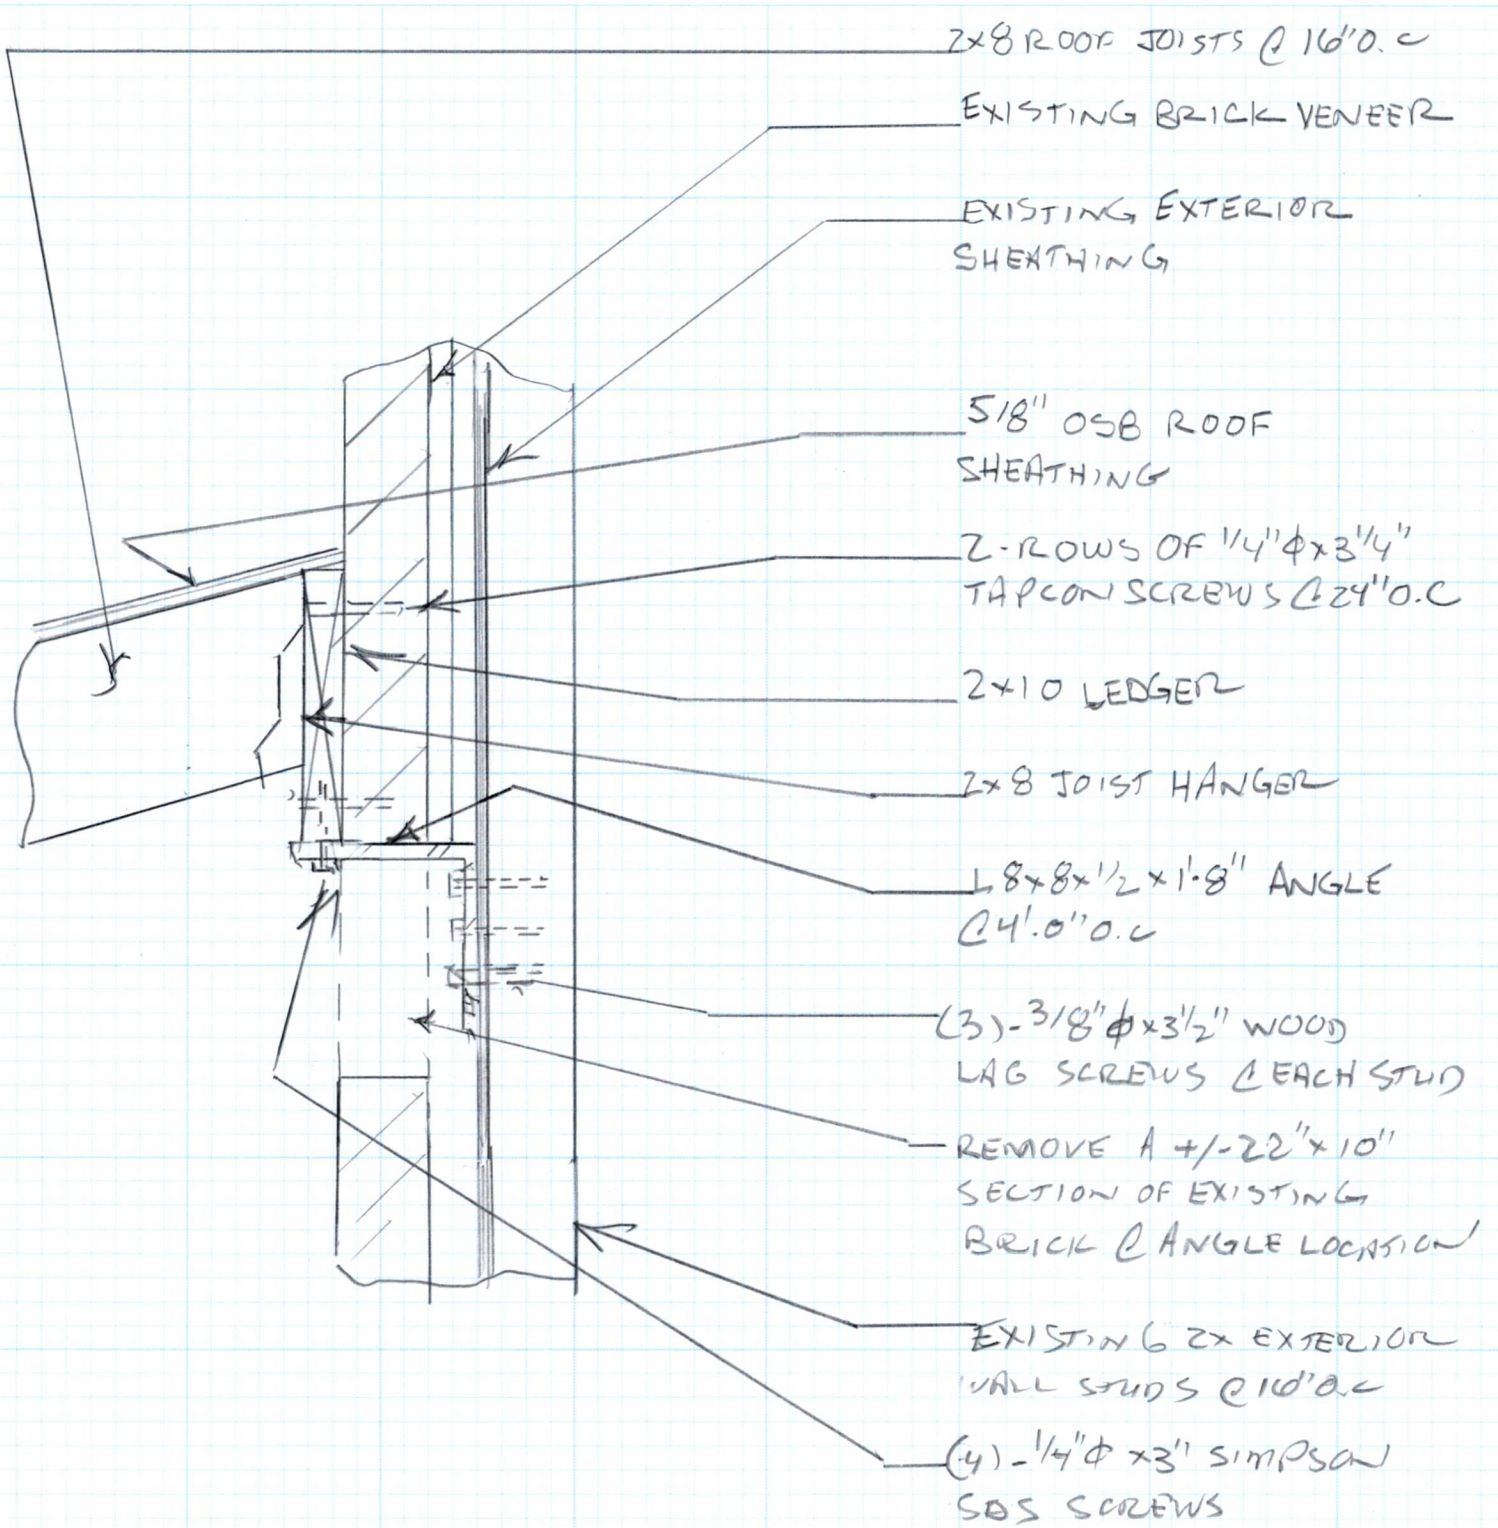 2x8 ROOF JOISTS @ 16" O.C
EXISTING BRICK VENEER
EXISTING EXTERIOR
SHEATHING
5/8" OSB ROOF
SHEATHING
2-ROWS OF 1/4"φ x 3 1/4"
TAPCON SCREWS @ 24" O.C
2x10 LEDGER
2x8 JOIST HANGER
L 8x8x1/2 x 1'-8" ANGLE
@ 4'-0" O.C
(3)-3/8"φ x 3 1/2" WOOD
LAG SCREWS @ EACH STUD
REMOVE A +/-22" x 10"
SECTION OF EXISTING
BRICK @ ANGLE LOCATION
EXISTING 2x EXTERIOR
WALL STUDS @ 16" O.C
(4)-1/4"φ x 3" SIMPSON
SDS SCREWS